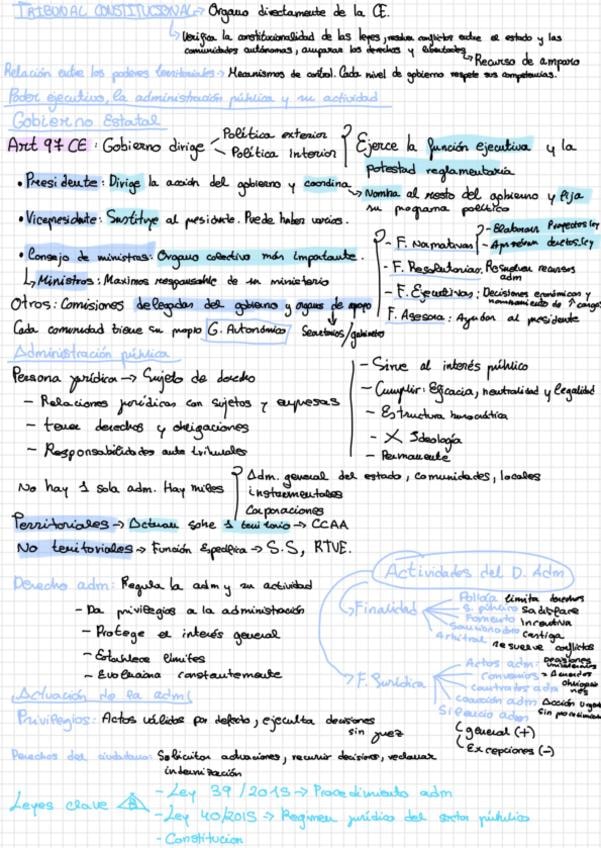 TRIBUNAL CONSTITUCIONAL → Organo directamente de la CE.
↳ Verifica la constitucionalidad de las leyes, resolver conflictos entre el estado y las
comunidades autónomas, amparar los derechos y libertades
↳ Recurso de amparo
Relación entre los poderes territoriales → Mecanismos de control. Cada nivel de gobierno respete sus competencias.
Poder ejecutivo, la administración pública y su actividad
Gobierno Estatal
Art 97 CE: Gobierno dirige
Política exterior
Política Interior
Ejerce la función ejecutiva y la
potestad reglamentaria
• Presidente: Dirige la acción del gobierno y coordina
→ Nombra al resto del gobierno y fija
su programa político
• Vicepresidente: Sustituye al presidente. Puede haber varios.
• Consejo de ministros: Organo colectivo más importante.
↳ Ministros: Maximos responsable de su ministerio
- F. Normativas
- Elaboran Proyectos ley
- Aprueban decretos ley
- F. Resolutorias: Resuelven recursos
adm
- F. Ejecutivas: Decisiones económicas y
nombramiento de ↑ cargos
F. Asesora: Ayudan al presidente
Otros: Comisiones delegadas del gobierno y organos de apoyo
Secretarios/gabinetes
Cada comunidad tiene su propio G. Autonómico
Administración pública
Persona jurídica → Sujeto de derecho
- Relaciones jurídicas con sujetos y empresas
- tener derechos y obligaciones
- Responsabilidades ante tribunales
- Sirve al interés público
- Cumplir: Eficacia, neutralidad y legalidad
- Estructura burocrática
- X Ideología
- Permanente
No hay 1 sola adm. Hay miles
Adm. general del estado, comunidades, locales
instrumentales
Corporaciones
Territoriales → Actuan sobre 1 territorio → CCAA
No territoriales → Función Específica → S.S, RTVE.
Derecho adm: Regula la adm y su actividad
- Da privilegios a la administración
- Protege el interés general
- Establece límites
- Evoluciona constantemente
Actividades del D. Adm
Finalidad
Policía limita derechos
S. público
Fomento Incentiva
Sancionadora Castiga
Arbitral resuelve conflictos
F. Jurídica
Actos adm: decisiones unilaterales
Convenios → Acuerdos
contratos adm obligaciones
coacción adm Acción urgente
sin procedimiento
Silencio adm
general (+)
Excepciones (-)
Actuación de la adm
Privilegios: Actos válidos por defecto, ejecuta decisiones
sin juez
Derechos del ciudadano: Solicitar actuaciones, recurrir decisiones, reclamar
indemnización
Leyes clave
- Ley 39/2015 → Procedimiento adm
- Ley 40/2015 → Regimen jurídico del sector público
- Constitucion